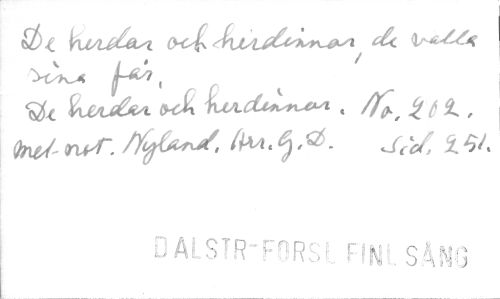 De herdar och herdinnar, de valla
sina får,
De herdar och herdinnor. No. 202.
mel-not. Nyland. Arr. G. D. Sid. 251.
DALSTR-FORSL FINL SÅNG